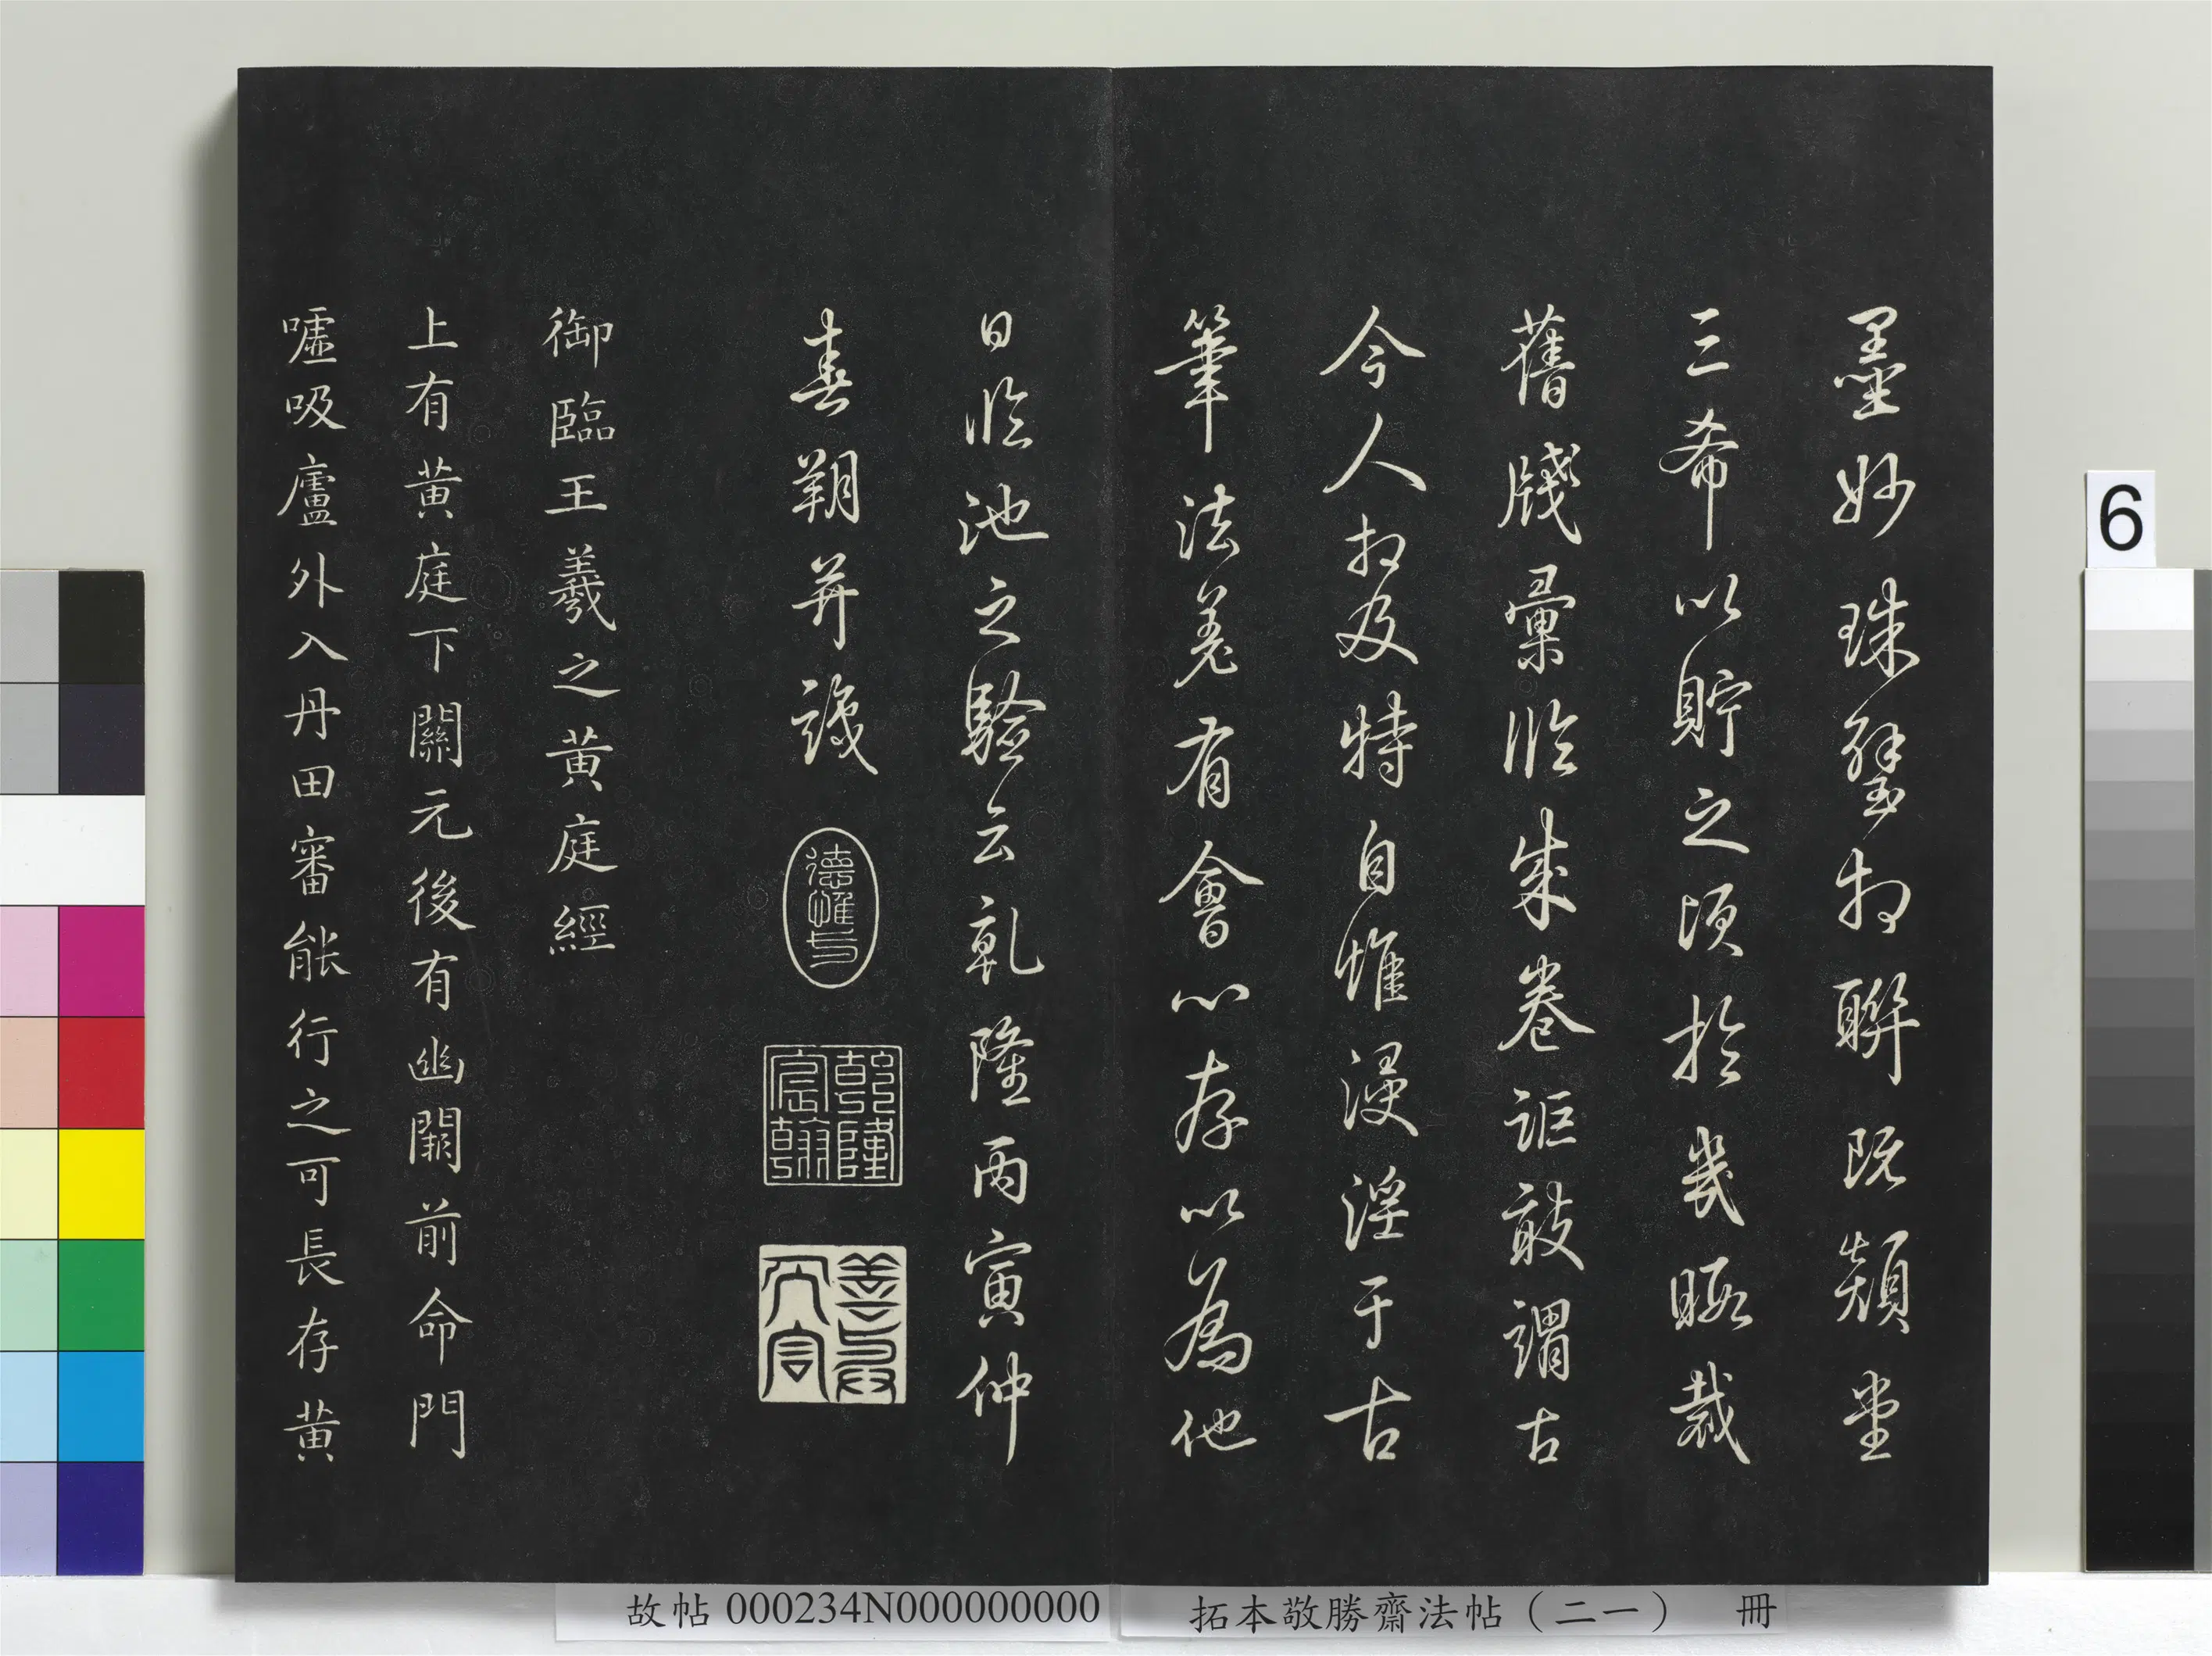 墨妙珠璧相聯既類堂
三希以貯之頃於幾暇裁
舊牋彙臨成卷詎敢謂古
今人相及特自惟浸淫于古
筆法差有會心存以為他
日臨池之驗云乾隆丙寅仲
春朔并識
德惟馨
乾隆宸翰
御臨王羲之黃庭經
上有黃庭下關元後有幽闕前命門
噓吸廬外入丹田審能行之可長存黃
6
故帖 000234N000000000
拓本敬勝齋法帖（二一） 冊